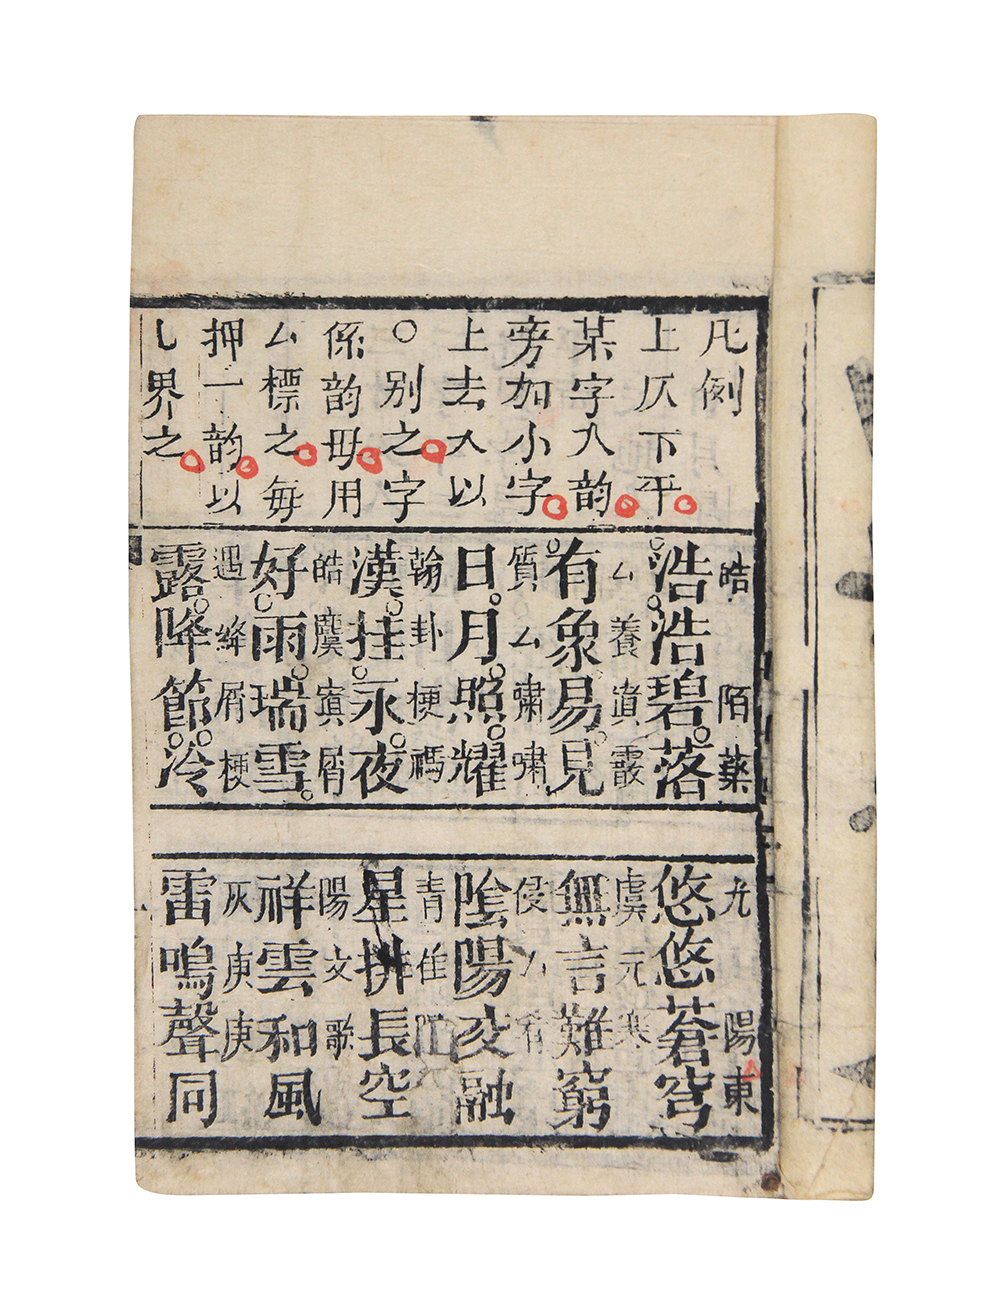 凡例
上仄下平
某字入韵
旁加小字
上去入以
○别之字
係韵毋用
厶標之每
押一韵以
乚界之
皓 陌藥
浩浩碧落
厶養寘霰
有象易見
質厶嘯嘯
日月照耀
翰卦梗禡
漢挂永夜
皓麌寘屑
好雨瑞雪
遇絳屑梗
露降節冷
尤 陽東
悠悠蒼穹
虞元寒
無言難窮
侵厶肴
陰陽交融
青佳陽
星排長空
陽文歌
祥雲和風
灰庚庚
雷鳴聲同